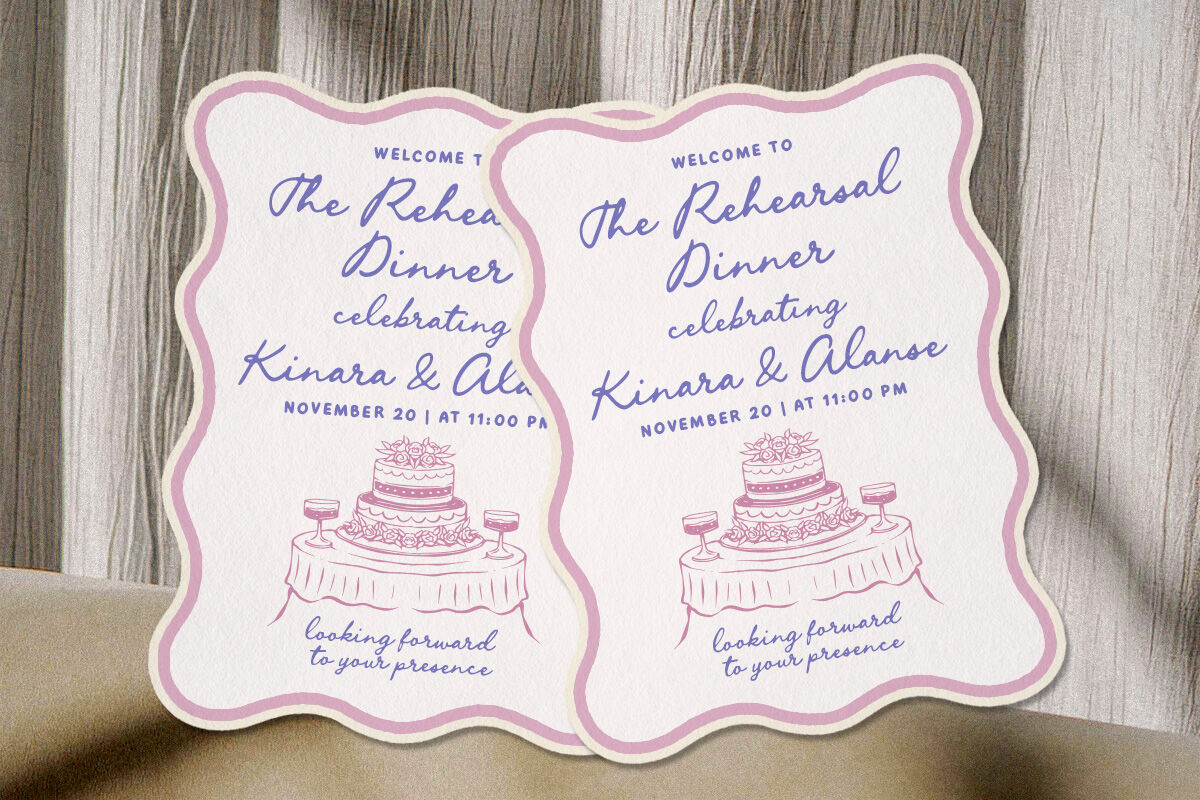 WELCOME T
The Rehea
Dinner
celebrating
Kinara & Ala
NOVEMBER 20 | AT 11:00 PM
looking forward
to your presence
WELCOME TO
The Rehearsal
Dinner
celebrating
Kinara & Alanse
NOVEMBER 20 | AT 11:00 PM
looking forward
to your presence